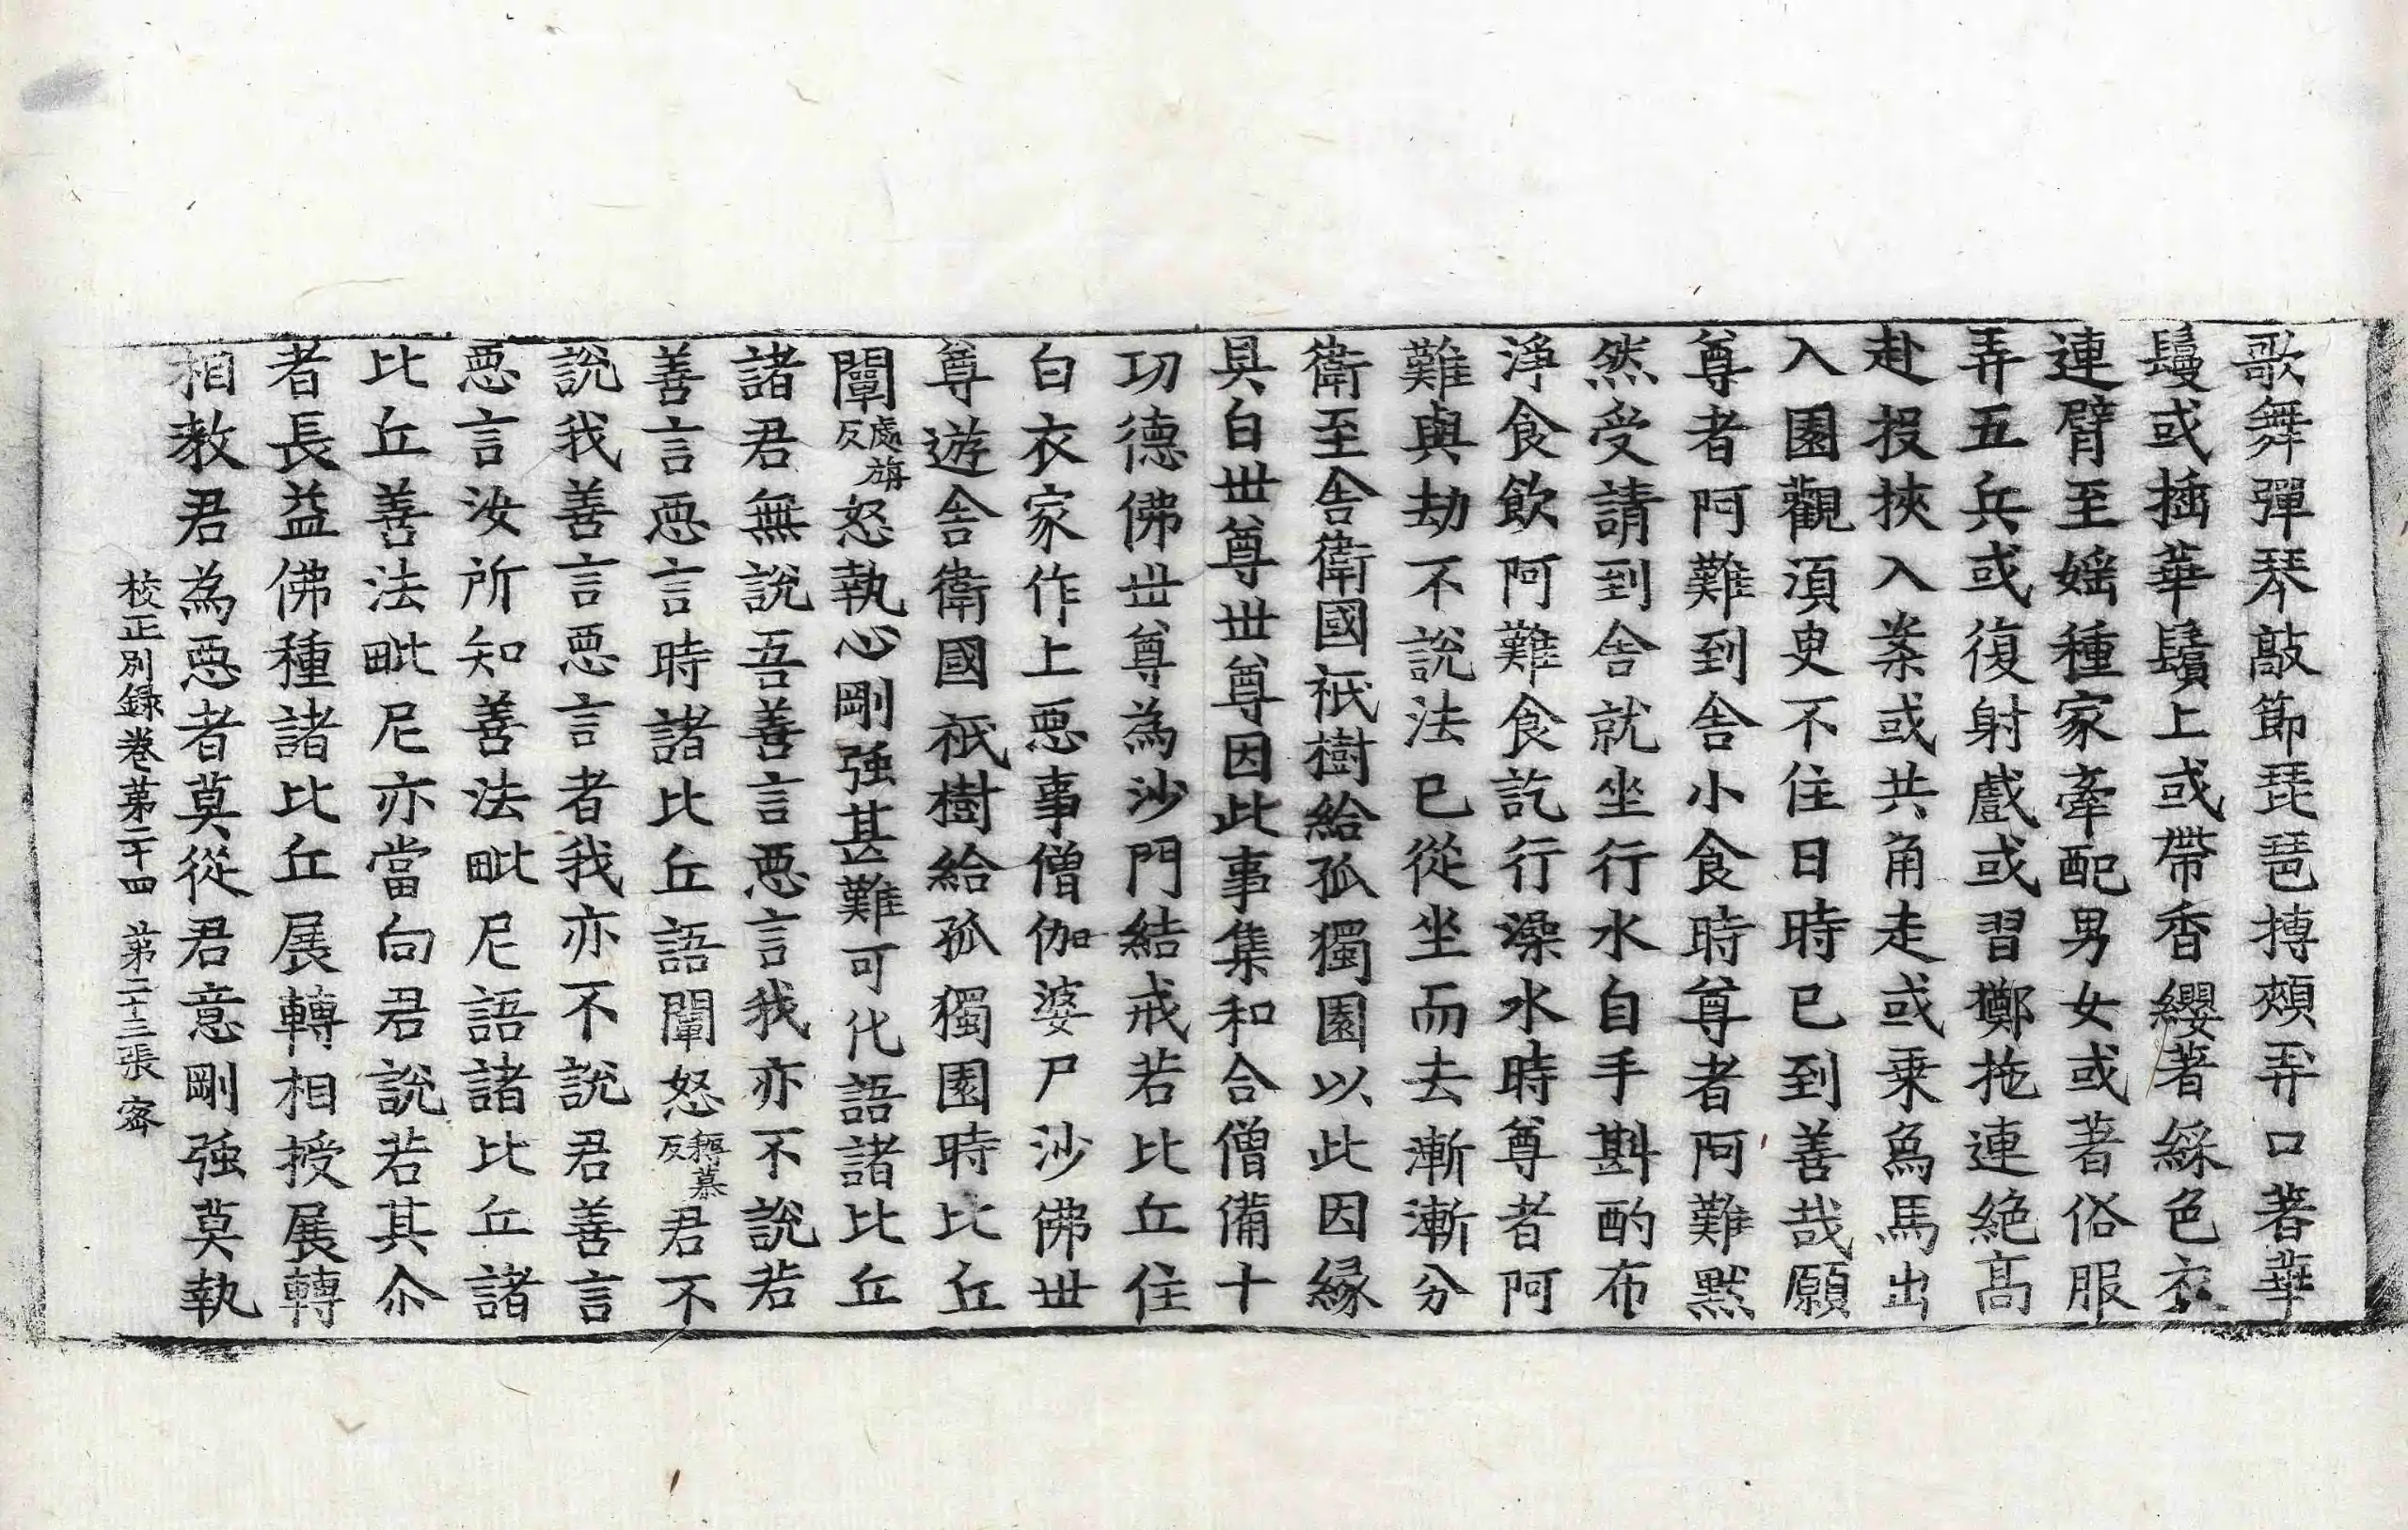 歌舞彈琴敲節琵琶摶頰弄口著華
鬘或插華鬚上或帶香纓著綵色衣
連臂至婬種家牽配男女或著俗服
弄五兵或復射戲或習擲拖連絕高
赴投挾入案或共角走或乗爲馬出
入園觀湏臾不住日時已到善哉願
尊者阿難到舎小食時尊者阿難黙
然受請到舎就坐行水自手斟酌布
淨食飲阿難食訖行澡水時尊者阿
難與劫不說法已從坐而去漸漸分
衛至舎衛國祇樹給孤獨園以此因緣
具白丗尊丗尊因此事集和合僧備十
功德佛丗尊為沙門結戒若比丘住
白衣家作上惡事僧伽婆尸沙佛丗
尊遊舎衛國祇樹給孤獨園時比丘
闡處旃反怒執心剛強甚難可化語諸比丘
諸君無說吾善言惡言我亦不說若
善言惡言時諸比丘語闡怒耨慕反君不
說我善言言惡言者我亦不說君善言
惡言汝所知善法毗尼語諸比丘諸
比丘善法毗尼亦當向君說若其尒
者長益佛種諸比丘展轉相授展轉
相教君為惡者莫從君意剛強莫執
校正別録卷苐二十四 苐二十三張 宻